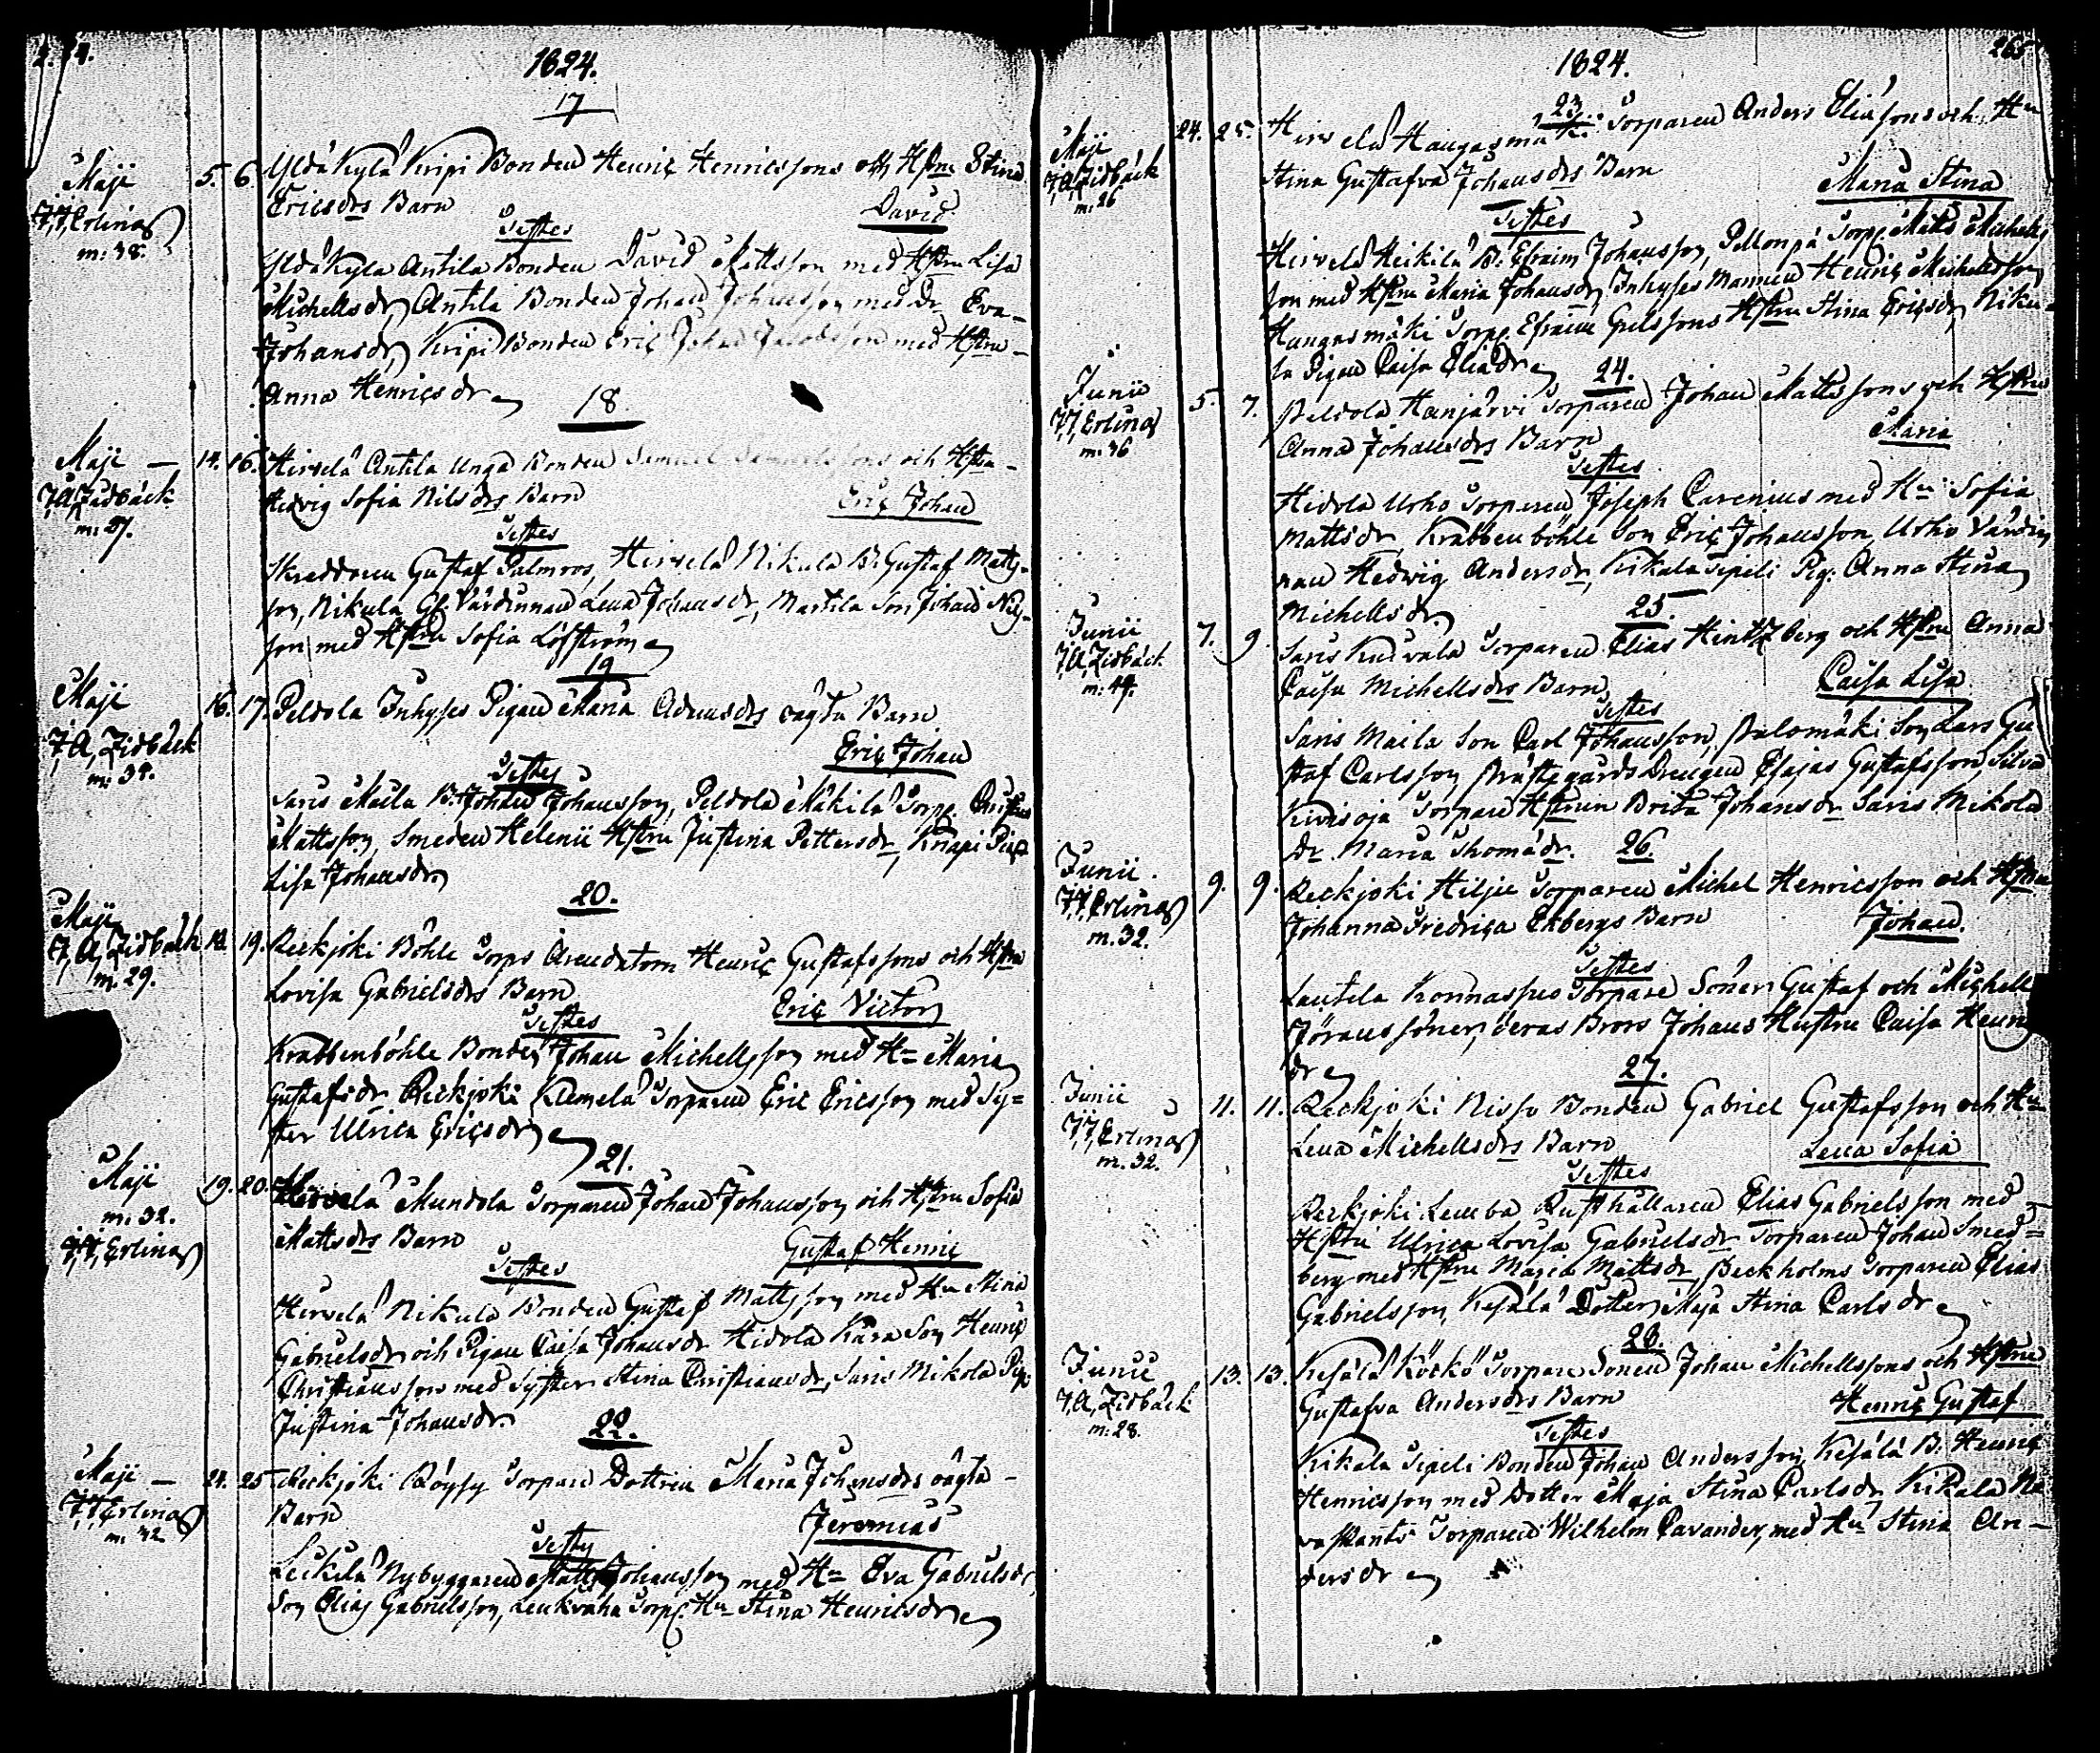 1824.
17
Maji 5. 6. Yldäkylä Kripi Bonden Henric Henricssons och Hstru Stina
J,J, Erlinas Ericsdrs Barn David
m: 38. Testes
Yldäkyla Antila Bonden David Mattsson med Hstru Lisa
Michellsdr, Antila Bonden Johan Johansson med Dr Eva
Johansdr, Kripi Bonden Eric Johan Jacobsson med Hstru
Anna Henricsdr
18
Maji 14. 16. Hirvelä Antila Unga Bonden Samuel och Hstru
J,A, Zidbäck Hedvig Sofia Nilsdrs Barn Eric Johan
m: 27. Testes
Skreddaren Gustaf Palmros, Hirvelä Nikula B. Gustaf Matts-
son, Nikula Gl. Värdinnan Lena Johansdr, Martila Son Johan Nils-
son med Hstru Sofia Löfström
19
Maji 16. 17. Peldola Inhyses Pigan Maria Adamsdrs oägta Barn
J,A, Zidbäck Eric Johan
m: 39. Testes
Saris Maila B. Johan Johansson, Peldola Mäkilä Torp.
Mattsson, Smeden Helenii Hstru Justina Pettersdr, Knapi Pig.
Lisa Johansdr
20.
Maji
J, A, Zidbäck 18. 19. Reckjoki Böhle Torps Arendatorn Henric Gustafssons och Hstru
m. 29. Lovisa Gabrielsdrs Barn Eric Victor
Testes
Krabbenböhle Bonden Johan Michellsson med Hu Maria
Gustafsdr Reckjoki Klemelä Torparen Eric Ericsson med Sy-
ster Ulrica Ericsdr
21.
Maji 19. 20. Hirvelä Mundola Torparen Johan Johansson och Hstru Sofia
m: 32. Mattsdrs Barn Gustaf Henric
J,J, Erlinas Testes
Hirvelä Nikula Bonden Gustaf Mattsson med Hu Stina
Gabrielsdr och Pigan Caisa Johansdr Hidola Kara Son Henric
Christiansson med Syster Stina Christiansdr, Saris Mikola Pig.
Justina Johansdr.
22.
Maji 24. 25 Reckjoki Röysy Torpare Dottren Maria Johansdrs oägta
J,J, Erlinas Barn Jeremias
m. 32 Testes
Leikilä Nybyggaren Matts Johansson med Hu Eva Gabrielsdr,
Son Elias Gabrielsson, Leukvaha Torp. Hu Stina Henricsdr
1824. 265
23.
Maji 24. 25. Hirvelä Hangasmäki Torparen Anders Eliassons och Hu
J,A, Zidbäck Stina Gustafva Johansdrs Barn Maria Stina
m: 26 Testes
Hirvelä Heikilä B. Efraim Johansson, Pellonpä Torp. Matts Michells
son med Hstru Maria Johansdr, Inhyses Mannen Henric Michellsson
Hangasmäki Torp. Efraim Grelssons Hstru Stina Ericsdr, Niku-
la Pigan Caisa Eliædr
24.
Junii 5. 7. Peldola Hanjärvi Torparen Johan Mattssons och Hstru
J,J, Erlinas Anna Johansdrs Barn Maria
m: 36 Testes
Hidola Urho Torparen Joseph Carenius med Hu Sofia
Mattsdr, Krabbenböhle Son Eric Johansson, Urho Värdin
nan Hedwig Andersdr, Kikala Sipeli Pig. Anna Stina
Michellsdr
25.
Junii 7. 9. Saris Knuvala Torparen Elias Hintzberg och Hstru Anna
J,A, Zidbäck Caisa Michellsdrs Barn Caisa Lisa
m: 44. Testes
Saris Maila Son Carl Johansson, Palomäki Son Lars Gu
staf Carlsson, Prästegårds Drengen Esajas Gustafsson, Silva
Kivisoja Torpare Hstrun Brita Johansdr Saris Mikola
Dr Maria Thomædr. 26.
Junii. 9. 9. Reckjoki Hiljie Torparen Michel Henricsson och Hstru
J,J, Erlinas Johanna Fredrica Ekbergs Barn Johan.
m. 32. Testes
Lautela Konnassuo Torpare Söner Gustaf och Michell
Jöransöner, deras Brors Johans Hustru Caisa Henrics
dr
27.
Junii 11. 11. Reckjoki Nisso Bonden Gabriel Gustafsson och Hu
J,J, Erlinas Lena Michellsdrs Barn Lena Sofia
m. 32. Testes
Reckjoki Lemba Rusthållaren Elias Gabrielsson med
Hstru Ulrica Lovisa Gabrielsdr Torparen Johan Smed-
berg med Hstru Maria Mattsdr, Beckholms Torparen Elias
Gabrielsson, Kesälä Dotter Maja Stina Carlsdr
28.
Junii 13. 13. Kesälä Köckö Torpare Sonen Johan Michellssons och Hstru
J,A, Zidbäck Gustafva Andersdrs Barn Henric Gustaf
m: 28. Testes
Kikala Sipeli Bonden Johan Andersson, Kesälä B. Henric
Henricsson med Dotter Maja Stina Carlsdr Kikala Ne
vaskants Torparen Wilhelm Cavander, med Hu Stina An-
dersdr